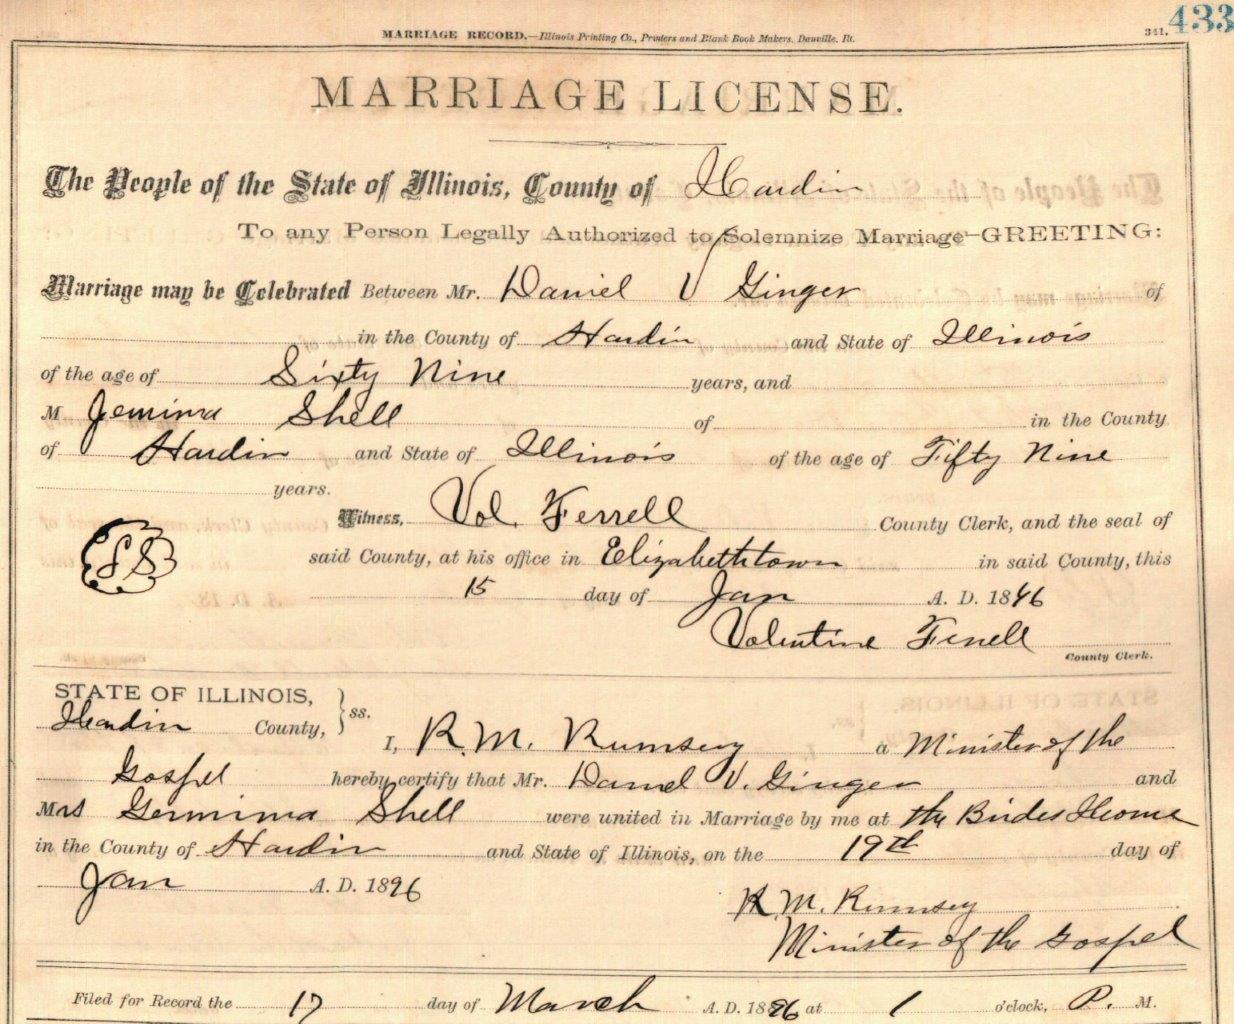 433
MARRIAGE RECORD.—Illinois Printing Co., Printers and Blank Book Makers, Danville, Ill. 341.
MARRIAGE LICENSE.
The People of the State of Illinois, County of Hardin
To any Person Legally Authorized to Solemnize Marriage—GREETING:
Marriage may be Celebrated Between Mr. Daniel V Ginger of
in the County of Hardin and State of Illinois
of the age of Sixty Nine years, and
M Jemima Shell of in the County
of Hardin and State of Illinois of the age of Fifty Nine
years.
Witness, Vol. Ferrell County Clerk, and the seal of
LS said County, at his office in Elizabethtown in said County, this
15 day of Jan A. D. 1896
Valentine Ferrell
County Clerk.
STATE OF ILLINOIS,
Hardin County, } ss.
I, R. M. Rumsey a Minister of the
Gospel hereby certify that Mr. Daniel V. Ginger and
Mrs Gemima Shell were united in Marriage by me at the Brides Home
in the County of Hardin and State of Illinois, on the 19th day of
Jan A. D. 1896
R. M. Rumsey
Minister of the Gospel
Filed for Record the 17 day of March A. D. 1896 at 1 o'clock, P. M.